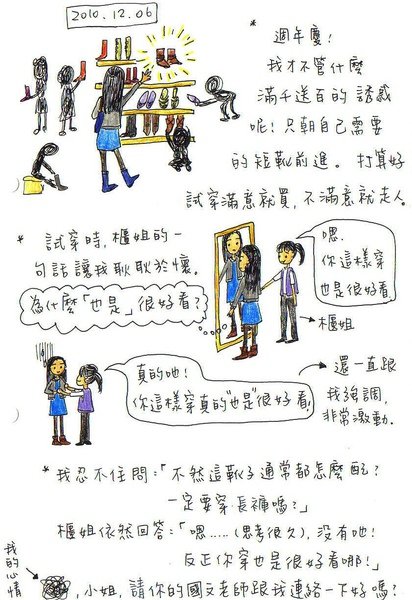 2010.12.06
* 週年慶!
我才不管什麼
滿千送百的誘惑
呢!只朝自己需要
的短靴前進。打算好
試穿滿意就買,不滿意就走人。
* 試穿時,櫃姐的一
句話讓我耿耿於懷。
為什麼「也是」很好看?
嗯.
你這樣穿
也是很好看.
櫃姐
真的吔!
你這樣穿真的"也是"很好看!
還一直跟
我強調,
非常激動.
*我忍不住問:「不然這靴子通常都怎麼配?
一定要穿長褲嗎?」
櫃姐依然回答:「嗯.....(思考很久),沒有吔!
反正你穿也是很好看哪!」
我的心情
,小姐,請你的國文老師跟我連絡一下好嗎?